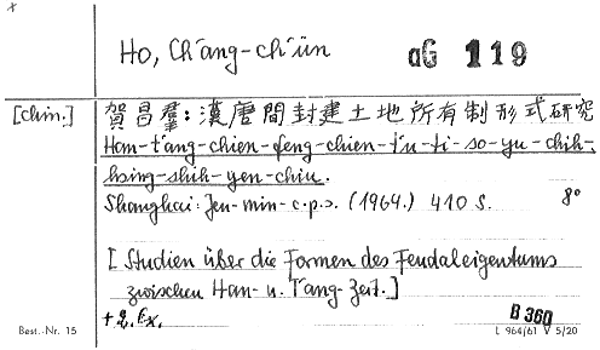 Ho, Ch'ang-ch'ün aG 119
[chin.] 賀昌羣: 漢唐間封建土地所有制形式研究
Han-t'ang-chien-feng-chien-t'u-ti-so-yu-chih-
hsing-shih-yen-chiu.
Shanghai: Jen-min-c.p.s. (1964.) 410 S. 8°
[Studien über die Formen des Feudaleigentums
zwischen Han- u. T'ang-Zeit.]
+ 2. Ex. B 360
Best.-Nr. 15 L 964/61 V 5/20